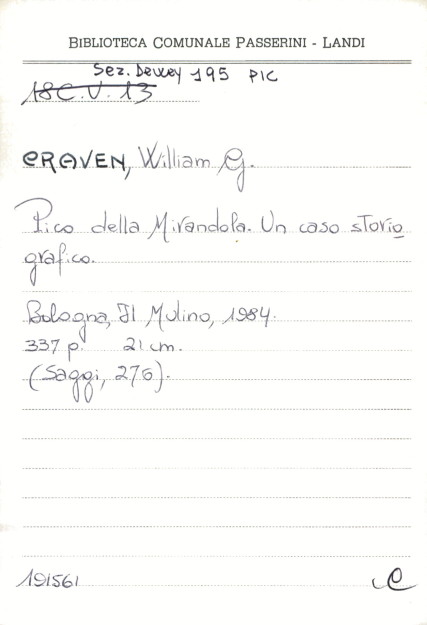 BIBLIOTECA COMUNALE PASSERINI - LANDI
Sez. Dewey 195 PIC
18C.V.13
CRAVEN, William G.
Pico della Mirandola. Un caso storio
grafico.
Bologna, Il Mulino, 1984.
337 p. 21 cm.
(Saggi, 276).
191561 C